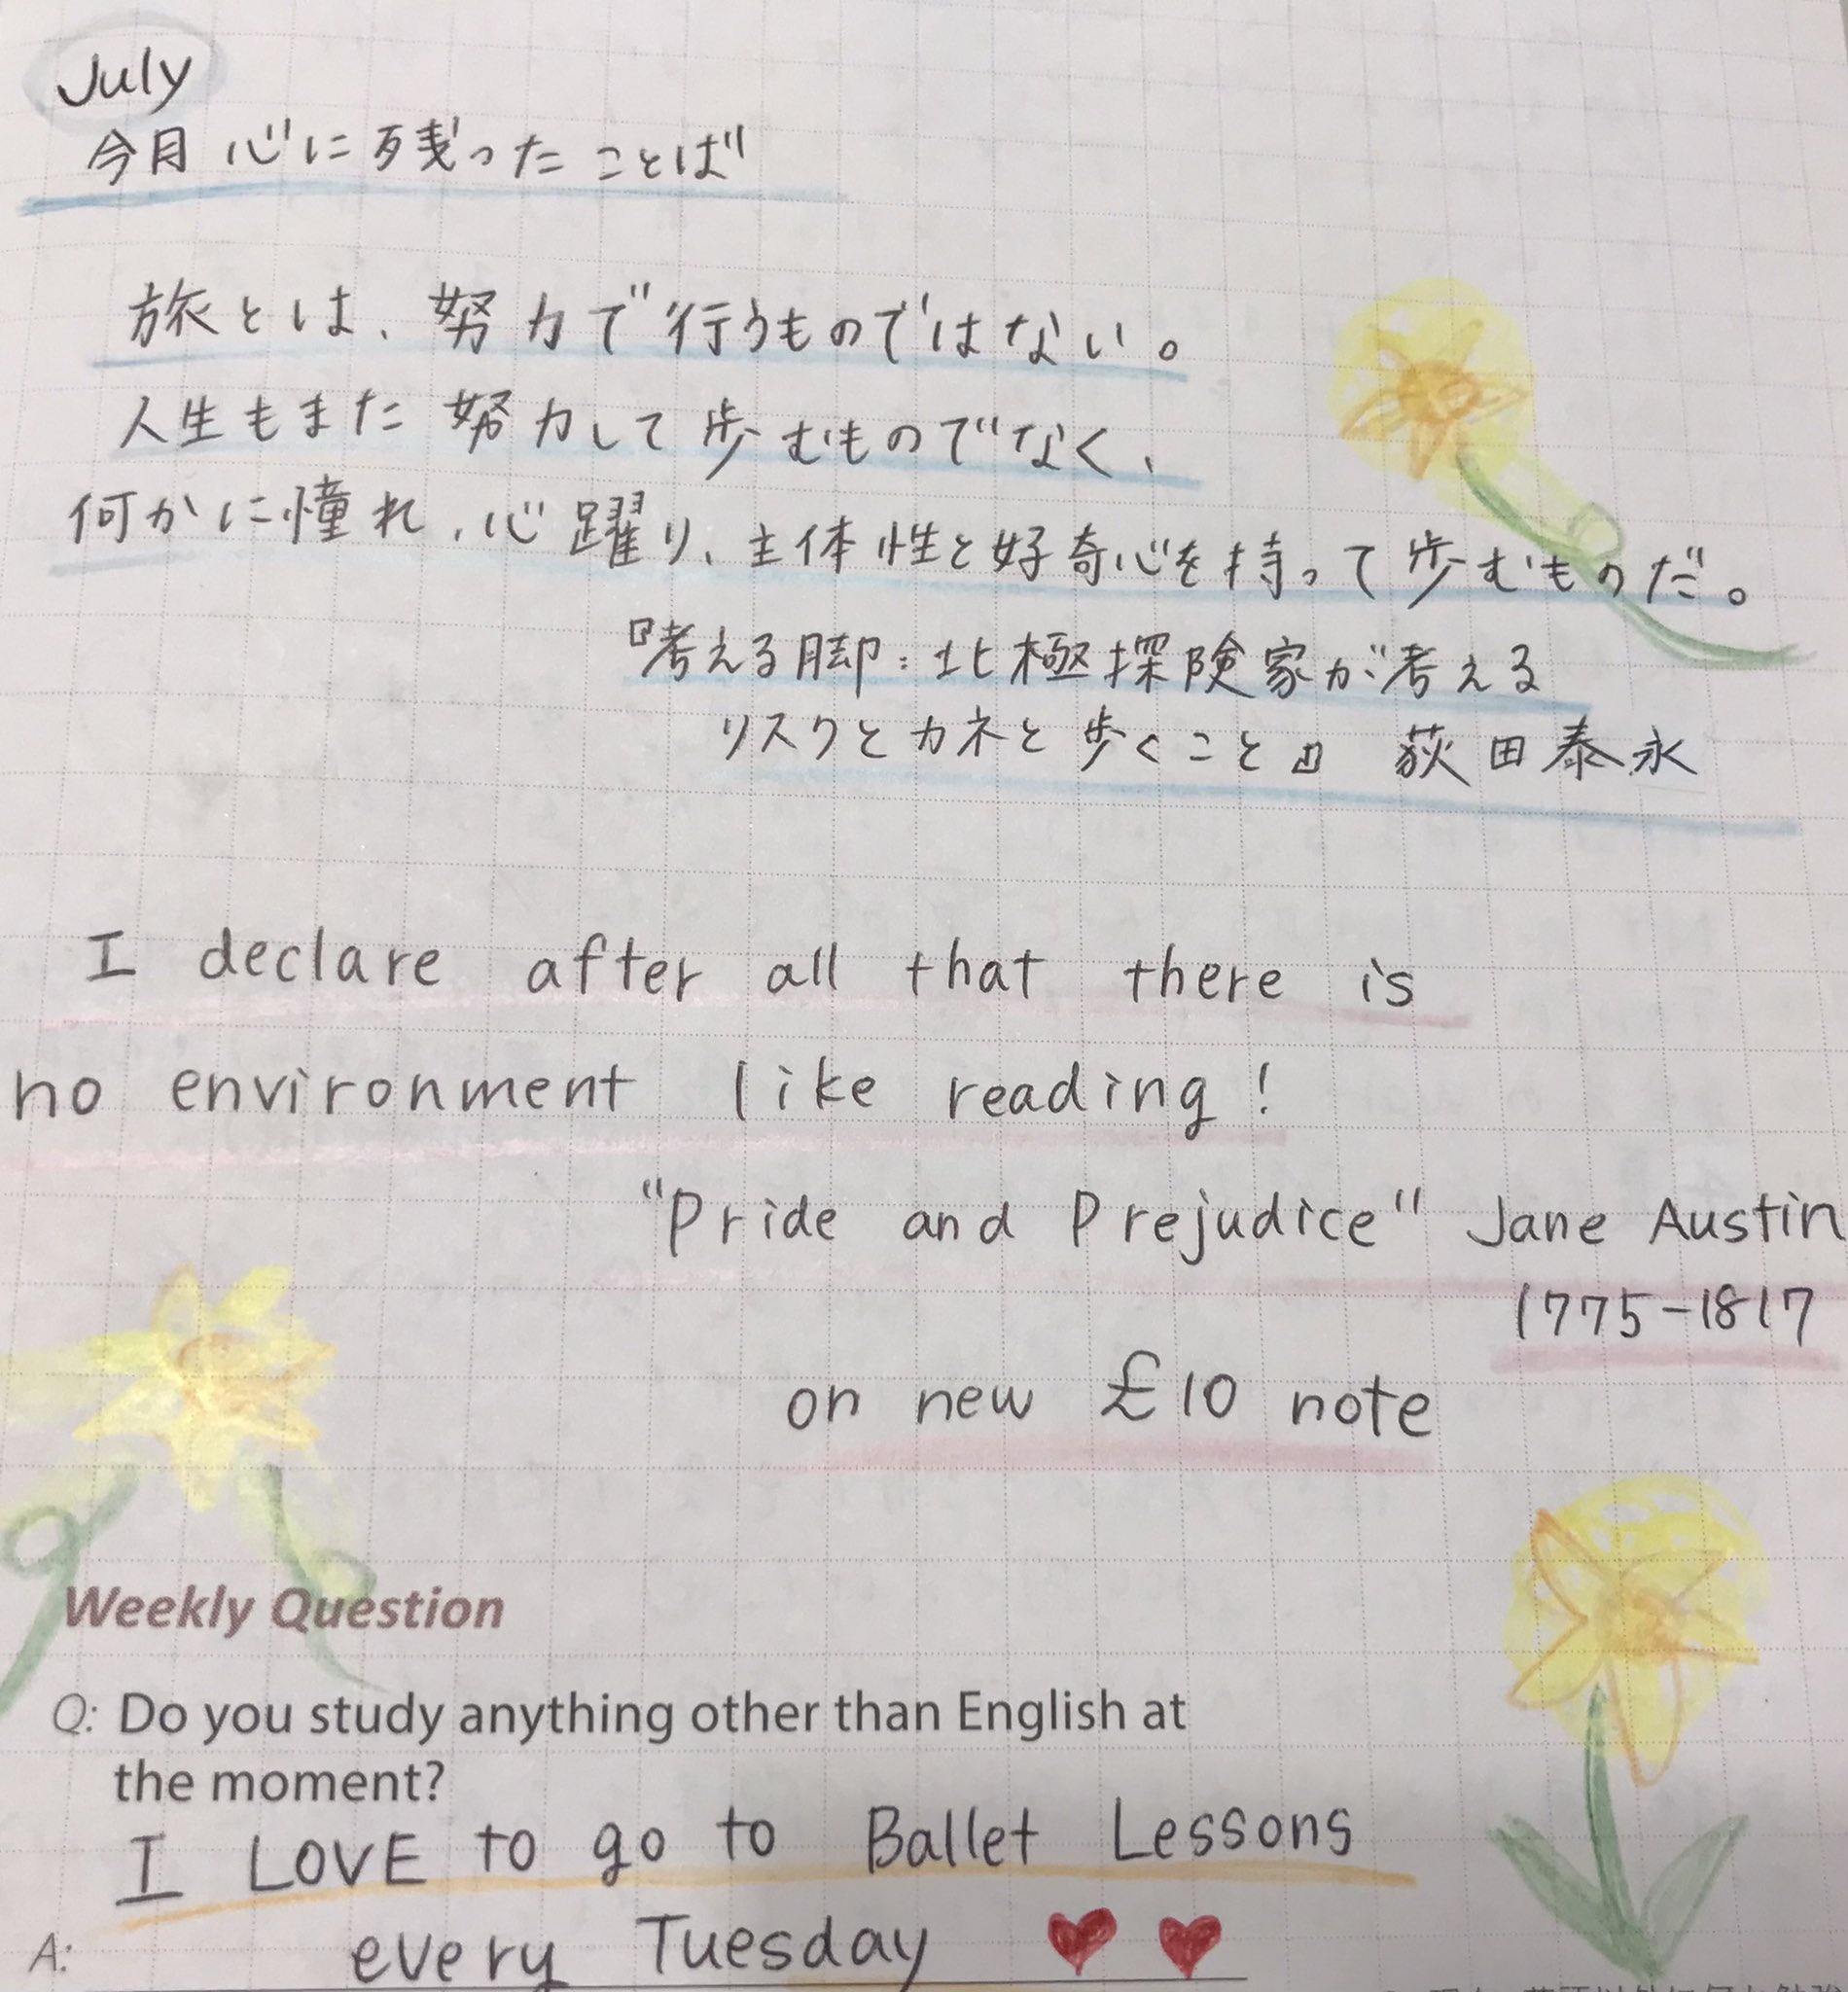 July
今月 心に残ったことば
旅とは、努力で行うものではない。
人生もまた努力して歩むものでなく、
何かに憧れ、心躍り、主体性と好奇心を持って歩むものだ。
『考える脚:北極探険家が考える
リスクとカネと歩くこと』 荻田泰永
I declare after all that there is
no environment like reading!
"Pride and Prejudice" Jane Austin
1775-1817
on new £10 note
Weekly Question
Q: Do you study anything other than English at
the moment?
I LOVE to go to Ballet Lessons
A: every Tuesday